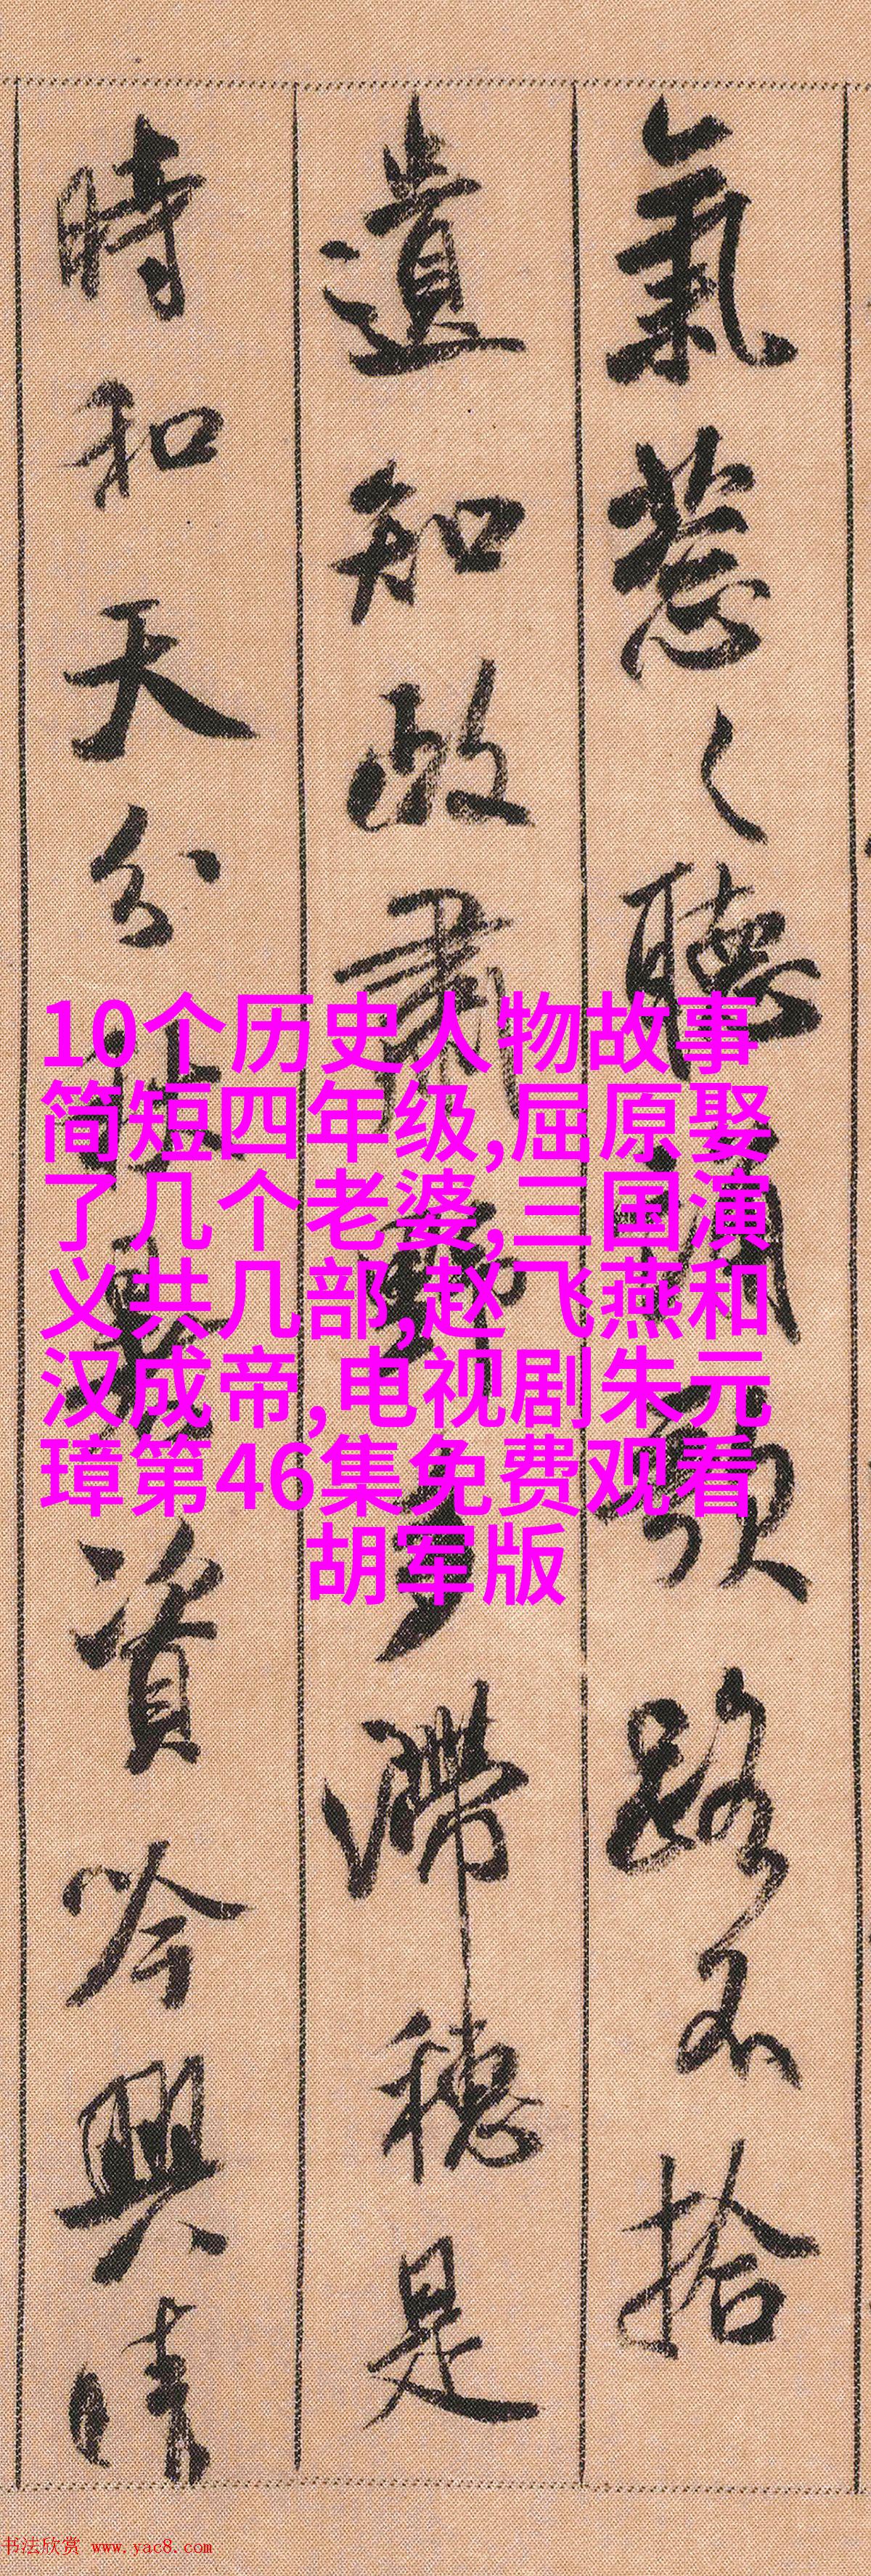 氣葱〻聽誦歌路不拾
遺知政肅野多滯穗是
時和天分秋暑資吟興晴
10个历史人物故事
简短四年级,屈原娶
了几个老婆,三国演
义共几部,赵飞燕和
汉成帝,电视剧朱元
璋第46集免费观看
胡军版
书法欣赏 www.yac8.com